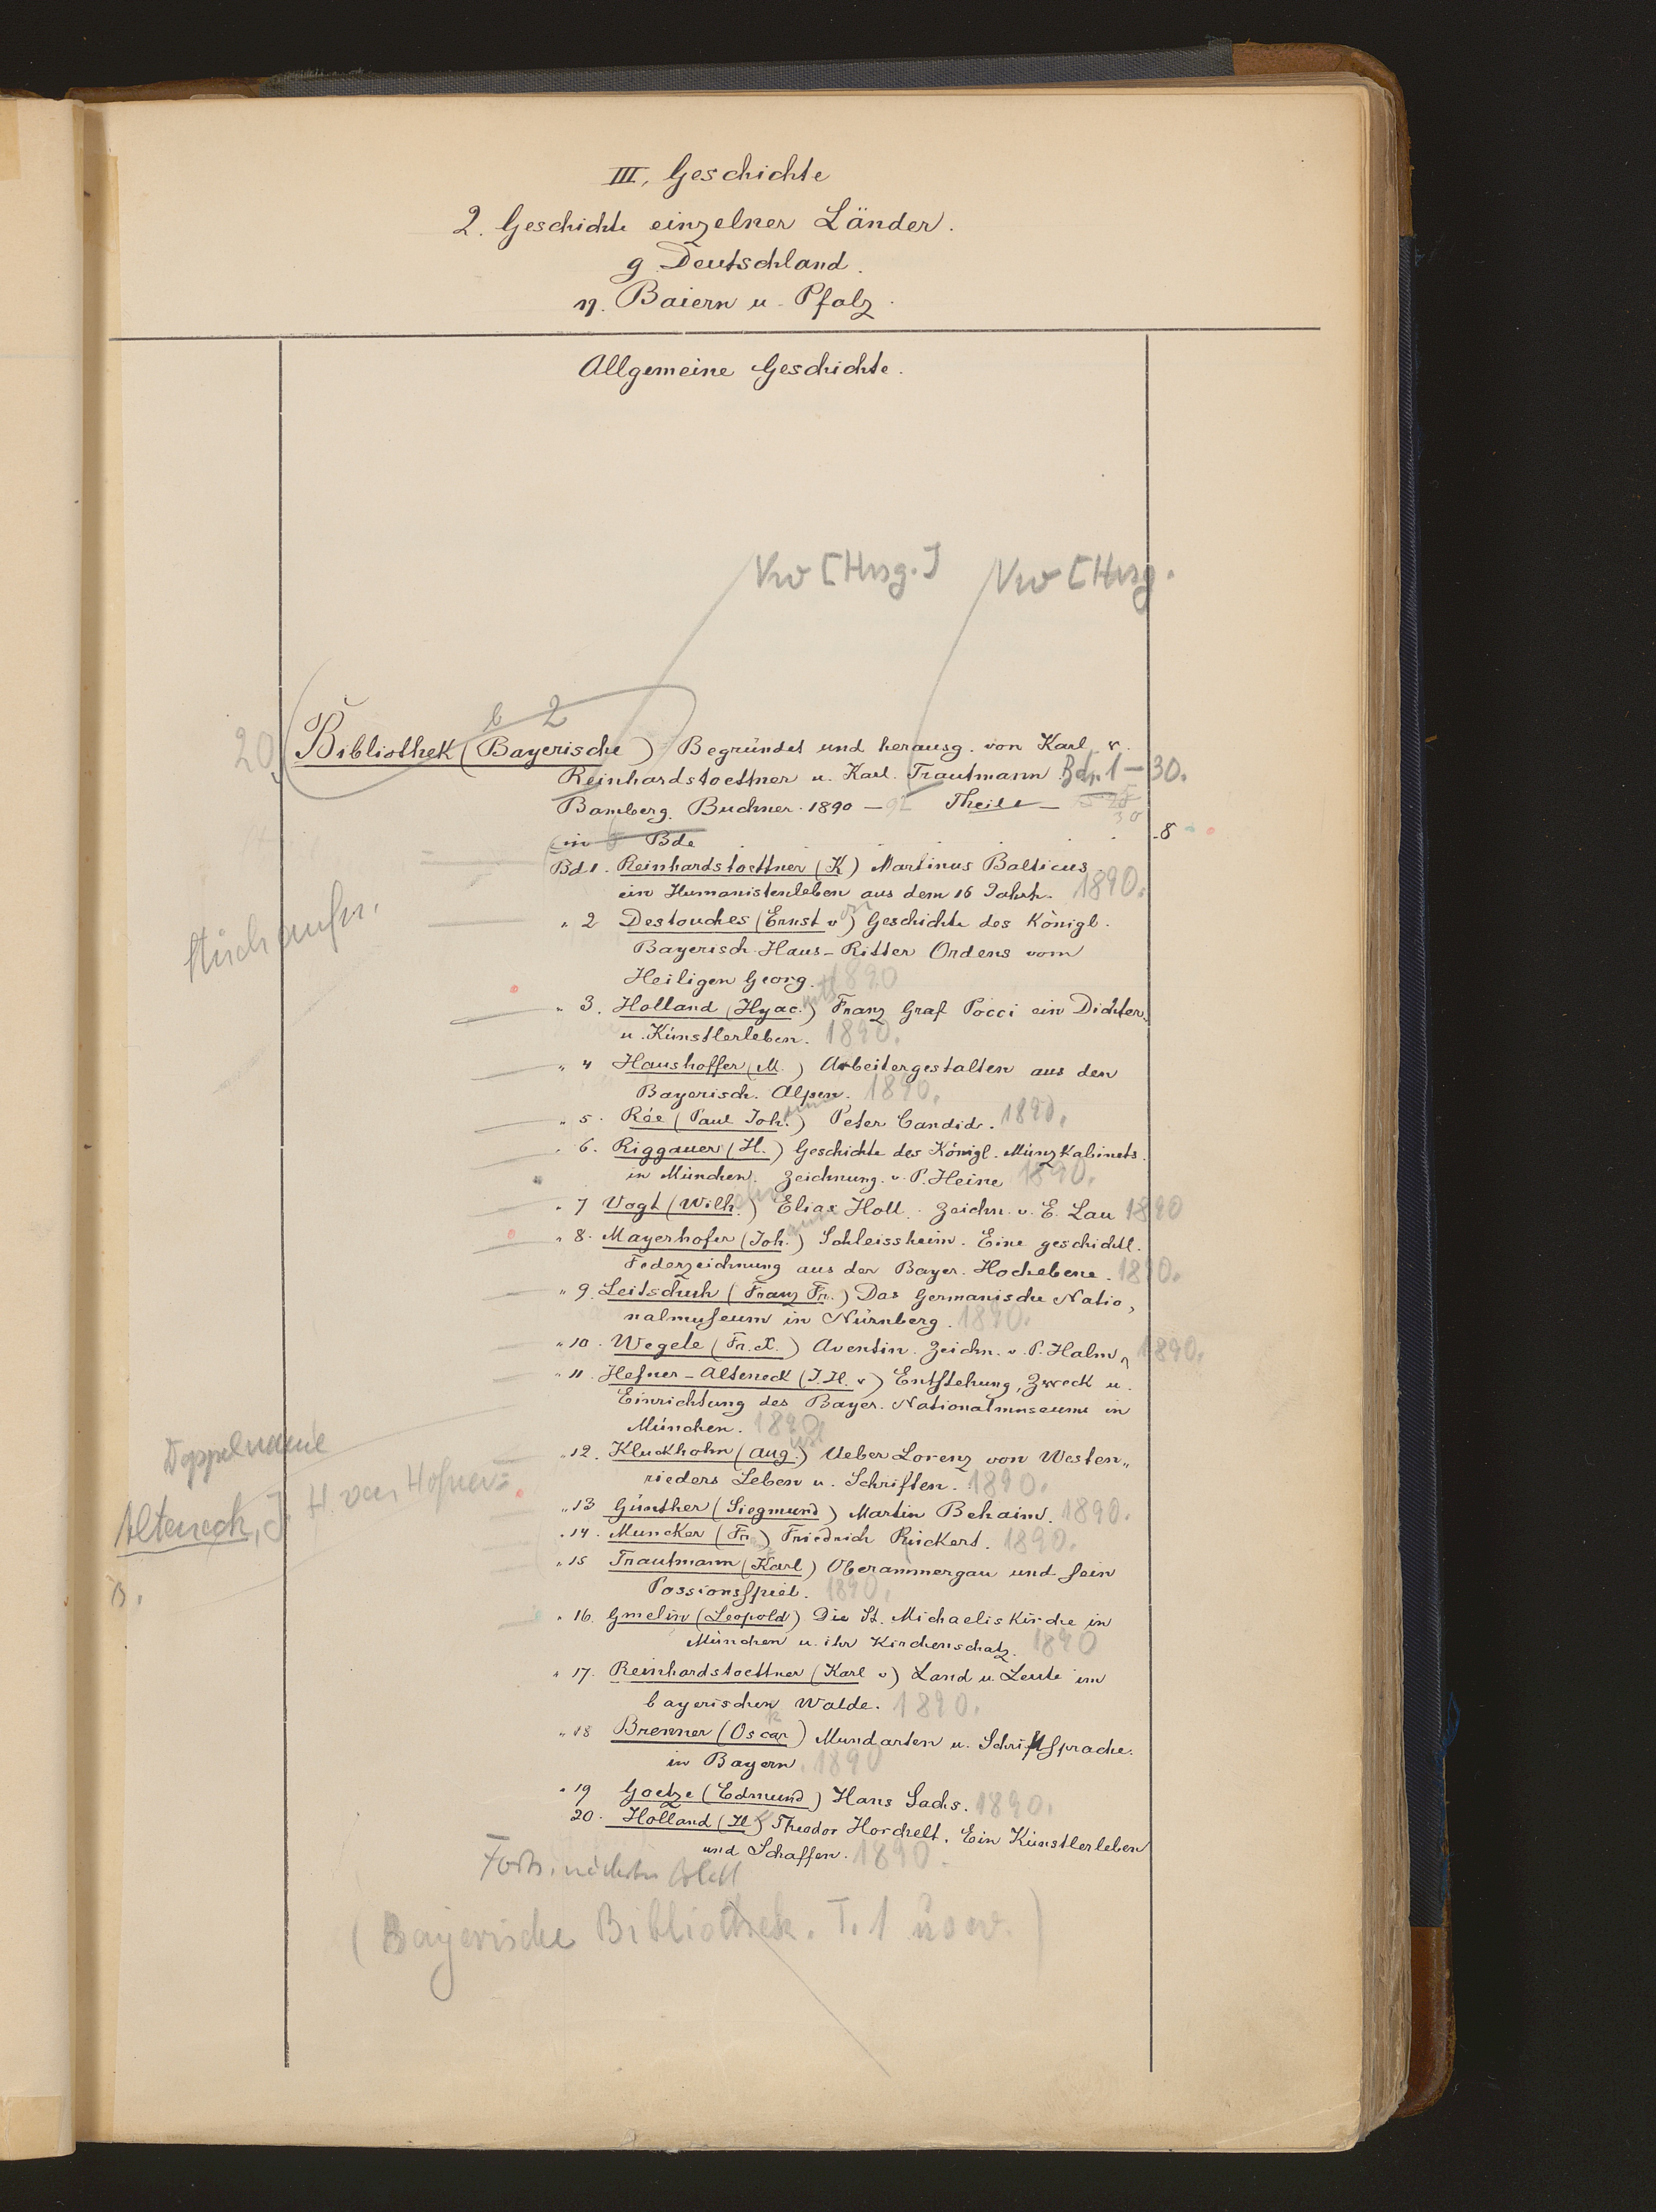 III. Geschichte
2. Geschichte einzelner Länder.
g. Deutschland.
η. Baiern u. Pfalz.
Allgemeine Geschichte.
Vw [Hrsg.] Vw [Hrsg.
b 2
20. Bibliothek (Bayerische) Begründet und herausg. von Karl v.
Reinhardstoettner u. Karl Trautmann Bd. 1-30.
Bamberg. Buchner. 1890 - 92 Theile -
30
in Bde . . . . . 8
Bd 1. Reinhardstoettner (K) Martinus Balticus
ein Humanistenleben aus dem 16 Jahrh. 1890.
" 2 Destouches (Ernst von) Geschichte des Königl.
Bayerisch. Haus-Ritter Ordens vom
Heiligen Georg. 1890
" 3. Holland (Hyac.) Franz Graf Pocci ein Dichter
u. Künstlerleben. 1890.
" 4 Haushoffer (M.) Arbeitergestalten aus den
Bayerisch. Alpen. 1890.
" 5. Rée (Paul Joh.) Peter Candid. 1890.
" 6. Riggauer (H.) Geschichte des Königl. Münzkabinets
in München. Zeichnung. v. P. Heine 1890.
" 7 Vogt (Wilh.) Elias Holl. Zeichn. v. E. Lau 1890
" 8. Mayerhofer (Joh.) Schleissheim. Eine geschichtl.
Federzeichnung aus der Bayer. Hochebene. 1890.
" 9. Leitschuh (Franz Fr.) Das Germanische Natio,
nalmuseum in Nürnberg. 1890.
" 10. Wegele (Fr. X.) Aventin. Zeichn. v. P. Halm, 1890.
" 11. Hefner-Alteneck (J. H. v) Entstehung, Zweck u.
Einrichtung des Bayer. Nationalmuseums in
München. 1890
Doppelname
" 12. Kluckhohn (Aug.) Ueber Lorenz von Westen„
rieders Leben u. Schriften. 1890.
Alteneck, J. H. von Hefner=
" 13 Günther (Siegmund) Martin Behaim. 1890.
" 14. Muncker (Fr) Friedrich Rückert. 1890.
" 15 Trautmann (Karl) Oberammergau und sein
B. Passionsspiel. 1890.
" 16. Gmelin (Leopold) Die St. Michaelis Kirche in
München u. ihr Kirchenschatz. 1890
" 17. Reinhardstoettner (Karl v) Land u. Leute im
bayerischen Walde. 1890.
" 18 Brenner (Oscar) Mundarten u. Schriftsprache
in Bayern. 1890
" 19 Goetze (Edmund) Hans Sachs. 1890.
20. Holland (H) Theodor Horchelt. Ein Künstlerleben
und Schaffen. 1890.
Forts. nächstes Blatt
(Bayerische Bibliothek. T. 1 usw.)